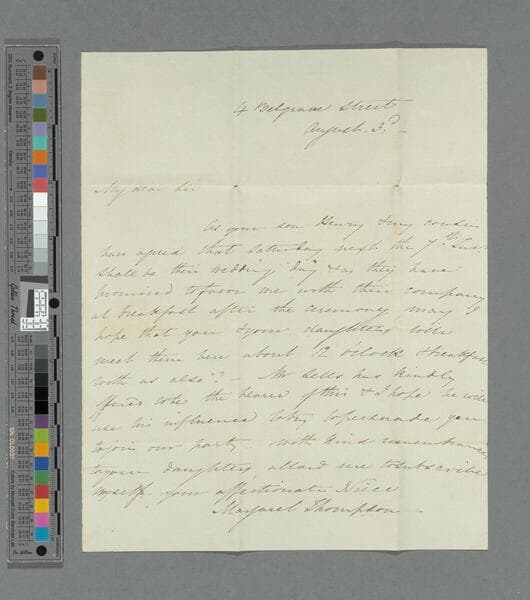 4 Belgrave Street
August. 3.d
My dear Sir
As your son Henry & my cousin
have agreed that Saturday next the 7th Inst
shall be their wedding day & as they have
promised to favor me with their company
at breakfast after the ceremony may I
hope that you & your daughters will
meet them here about 12 oclock & breakfast
with us also? — Mr Sells has kindly
offered to be the bearer of this & I hope he will
use his influence to try to persuade you
to join our party. with kind remembrances
to your daughters allow me to subscribe
myself your affectionate Niece
Margaret Thompson